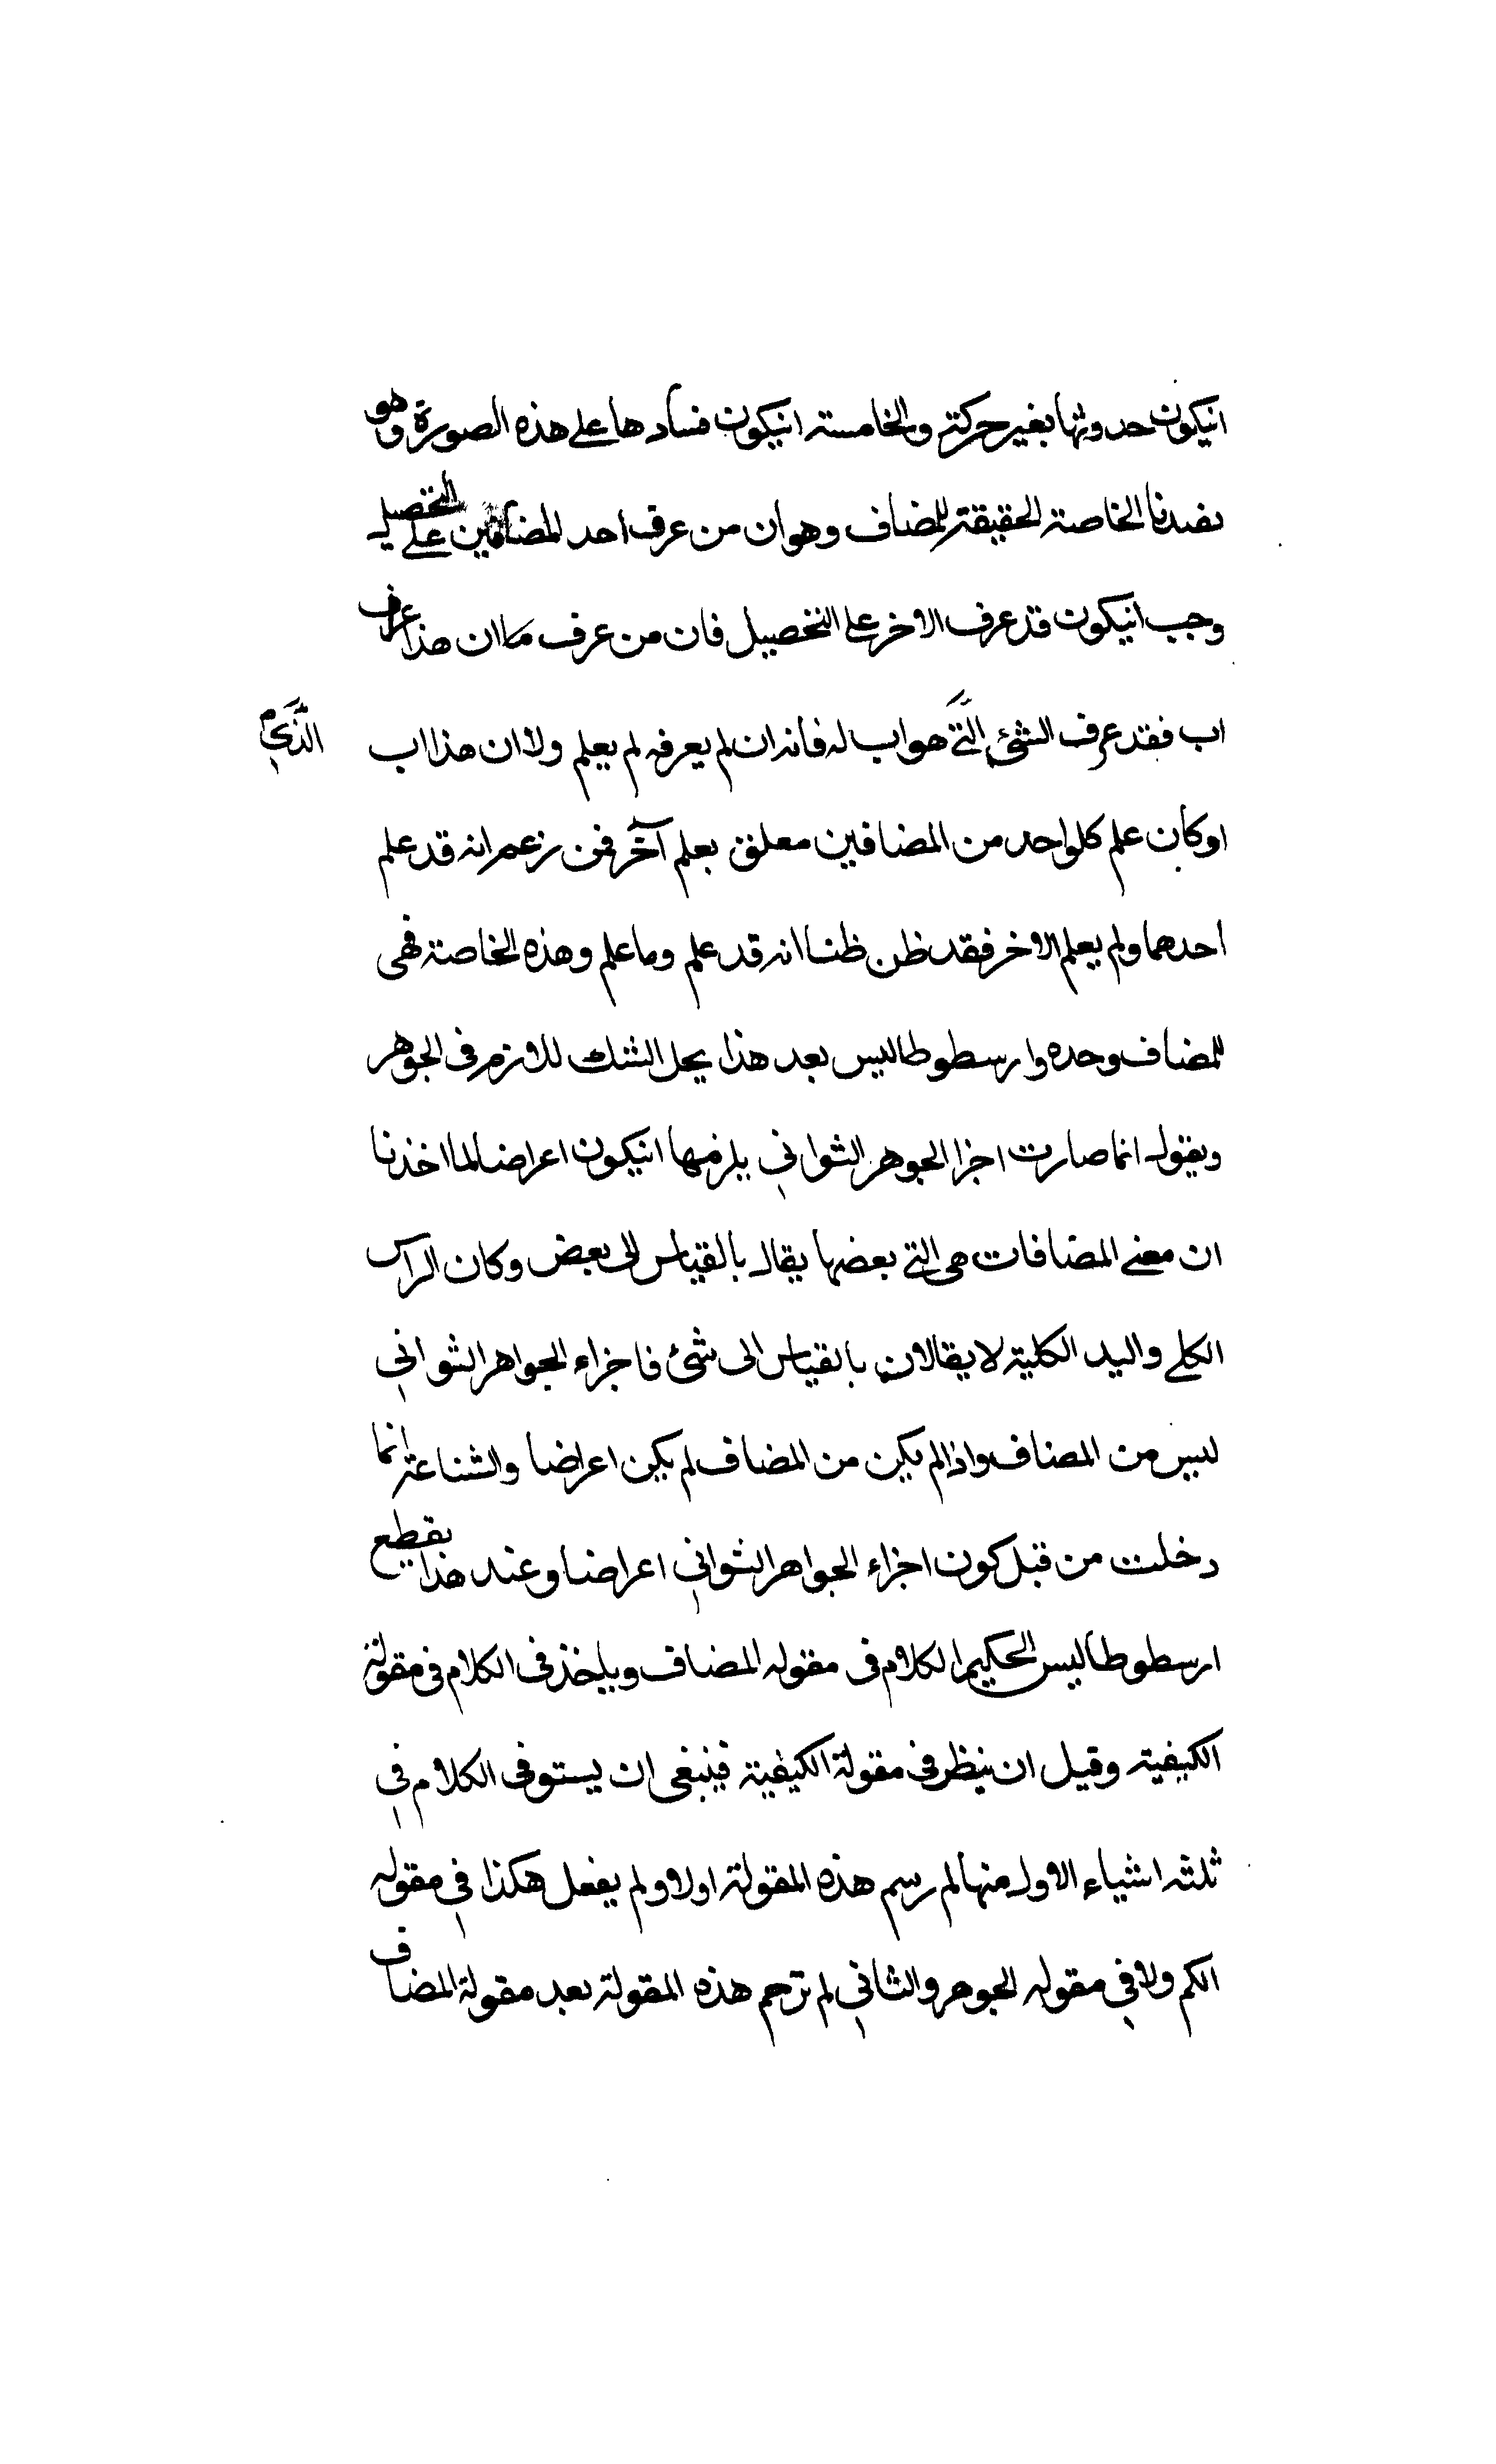 انيكون حدوثها بغير حركة والخامسة انيكون فسادها على هذه الصورة وهو
يفيدنا الخاصة الحقيقة للمضاف وهو ان من عرف احد المضافين على التحصيل
وجب انيكون قد عرف الاخر على التحصيل فان من عرف ان هذا
اب فقد عرف الشئ التي هو اب له فانه ان لم يعرفه لم يعلم ولا ان هذا اب
الذي
او كان علم كلواحد من المضافين معلق بعلم آخر فمن زعم انه قد علم
احدهما ولم يعلم الاخر فقد ظن ظنا انه قد علم وما علم وهذه الخاصة فهى
للمضاف وحده وارسطوطاليس بعد هذا يحل الشك للازم فى الجوهر
ويقول انما صارت اجزا الجوهر الثوانى يلزمها انيكون اعراضا لما اخذنا
ان معنى المضافات هى التى بعضها يقال بالقياس الى بعض وكان الراس
الكلى واليد الكلية لا يقالان بالقياس الى شئ فاجزاء الجواهر الثوانى
ليس من المضاف واذا لم يكن من المضاف لم يكن اعراضا والشناعة انما
دخلت من قبل كون اجزاء الجواهر الثوانى اعراضا وعند هذا يقطع
ارسطوطاليس الحكيم الكلام فى مقوله المضاف وياخذ فى الكلام فى مقولة
الكيفية وقبل ان ينظر فى مقولة الكيفية فينبغى ان يستوفى الكلام فى
ثلثه اشياء الاول منها لم رسم هذه المقولة اولا ولم يفعل هكذا فى مقوله
الكم ولا فى مقوله الجوهر والثانى لم ترجم هذه المقولة بعد مقولة المضاف